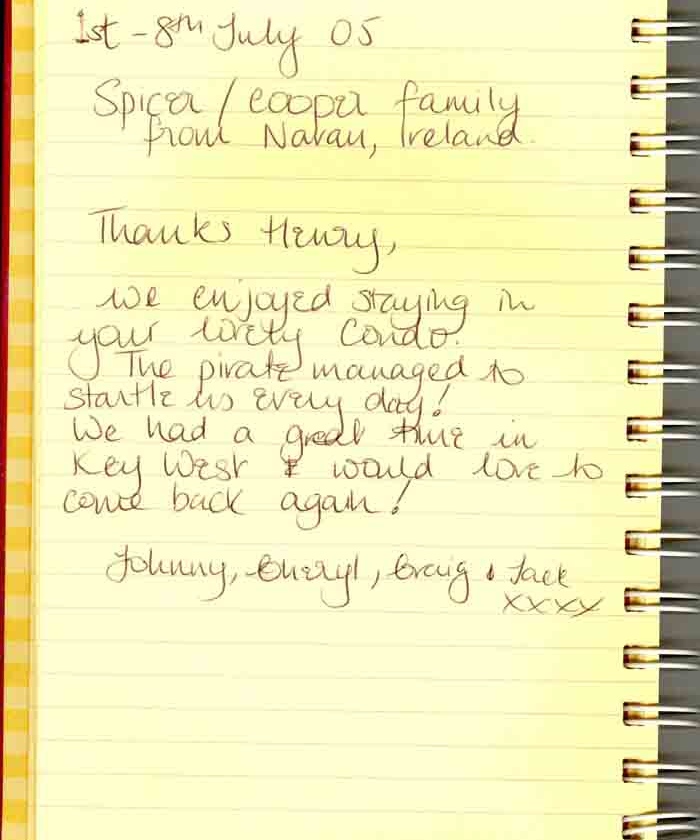 1st - 8th July 05
Spicer / Cooper family
from Navan, Ireland.
Thanks Henry,
We enjoyed staying in
your lovely Condo.
The pirate managed to
startle us every day!
We had a great time in
Key West & would love to
come back again!
Johnny, Cheryl, Craig & Jack
xxxx